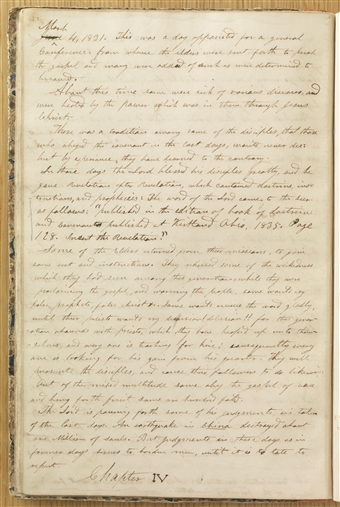 March
June 4, 1831. This was a day appointed for a general
conference: from whence the elders were sent forth to preach
the gospel and many were added of such as were determined to
be saved.
About this time some were sick of various diseases, and
were healed by the power which was in them through Jesus
Christ.
There was a tradition among some of the disciples, that those
who obeyed the covenant in the last days, would never die:
but by experience, they have learned to the contrary.
In those days the Lord blessed his disciples greatly, and he
gave Revelation after Revelation, which contained doctrine, inst
ructions, and prophecies: The word of the Lord came to the seer
as follows: "published in the edition of book of doctrine
and covenants published at Kirtland Ohio. 1835. Page
128. Insert the Revelation."
Some of the Elders returned from their missions, to gain
some rest and instructions. They rehearsed some of the wickedness
which they had seen among this generation while they were
proclaiming the gospel, and warning the people. Some would cry
false prophets, false christ &c. Some would receive the word gladly,
until their priests would cry
ration abounds with priests, which they have heaped up unto them-
selves, and very one is teachers for hire; consequently every
one is looking for his gain from his quarter. They will
persecute the disciples, and cause their followers to do likewise
but of the mixed multitude some obey the gospel of
and bring forth fruit some an hundred fold.
The Lord is pouring forth some of his judgments, in token
of the last days. An earthquake in China destroyed about
one Million of souls. But judgments in these days as in
former days seems to harden men, until it is to late to
repent.
Chapter IV